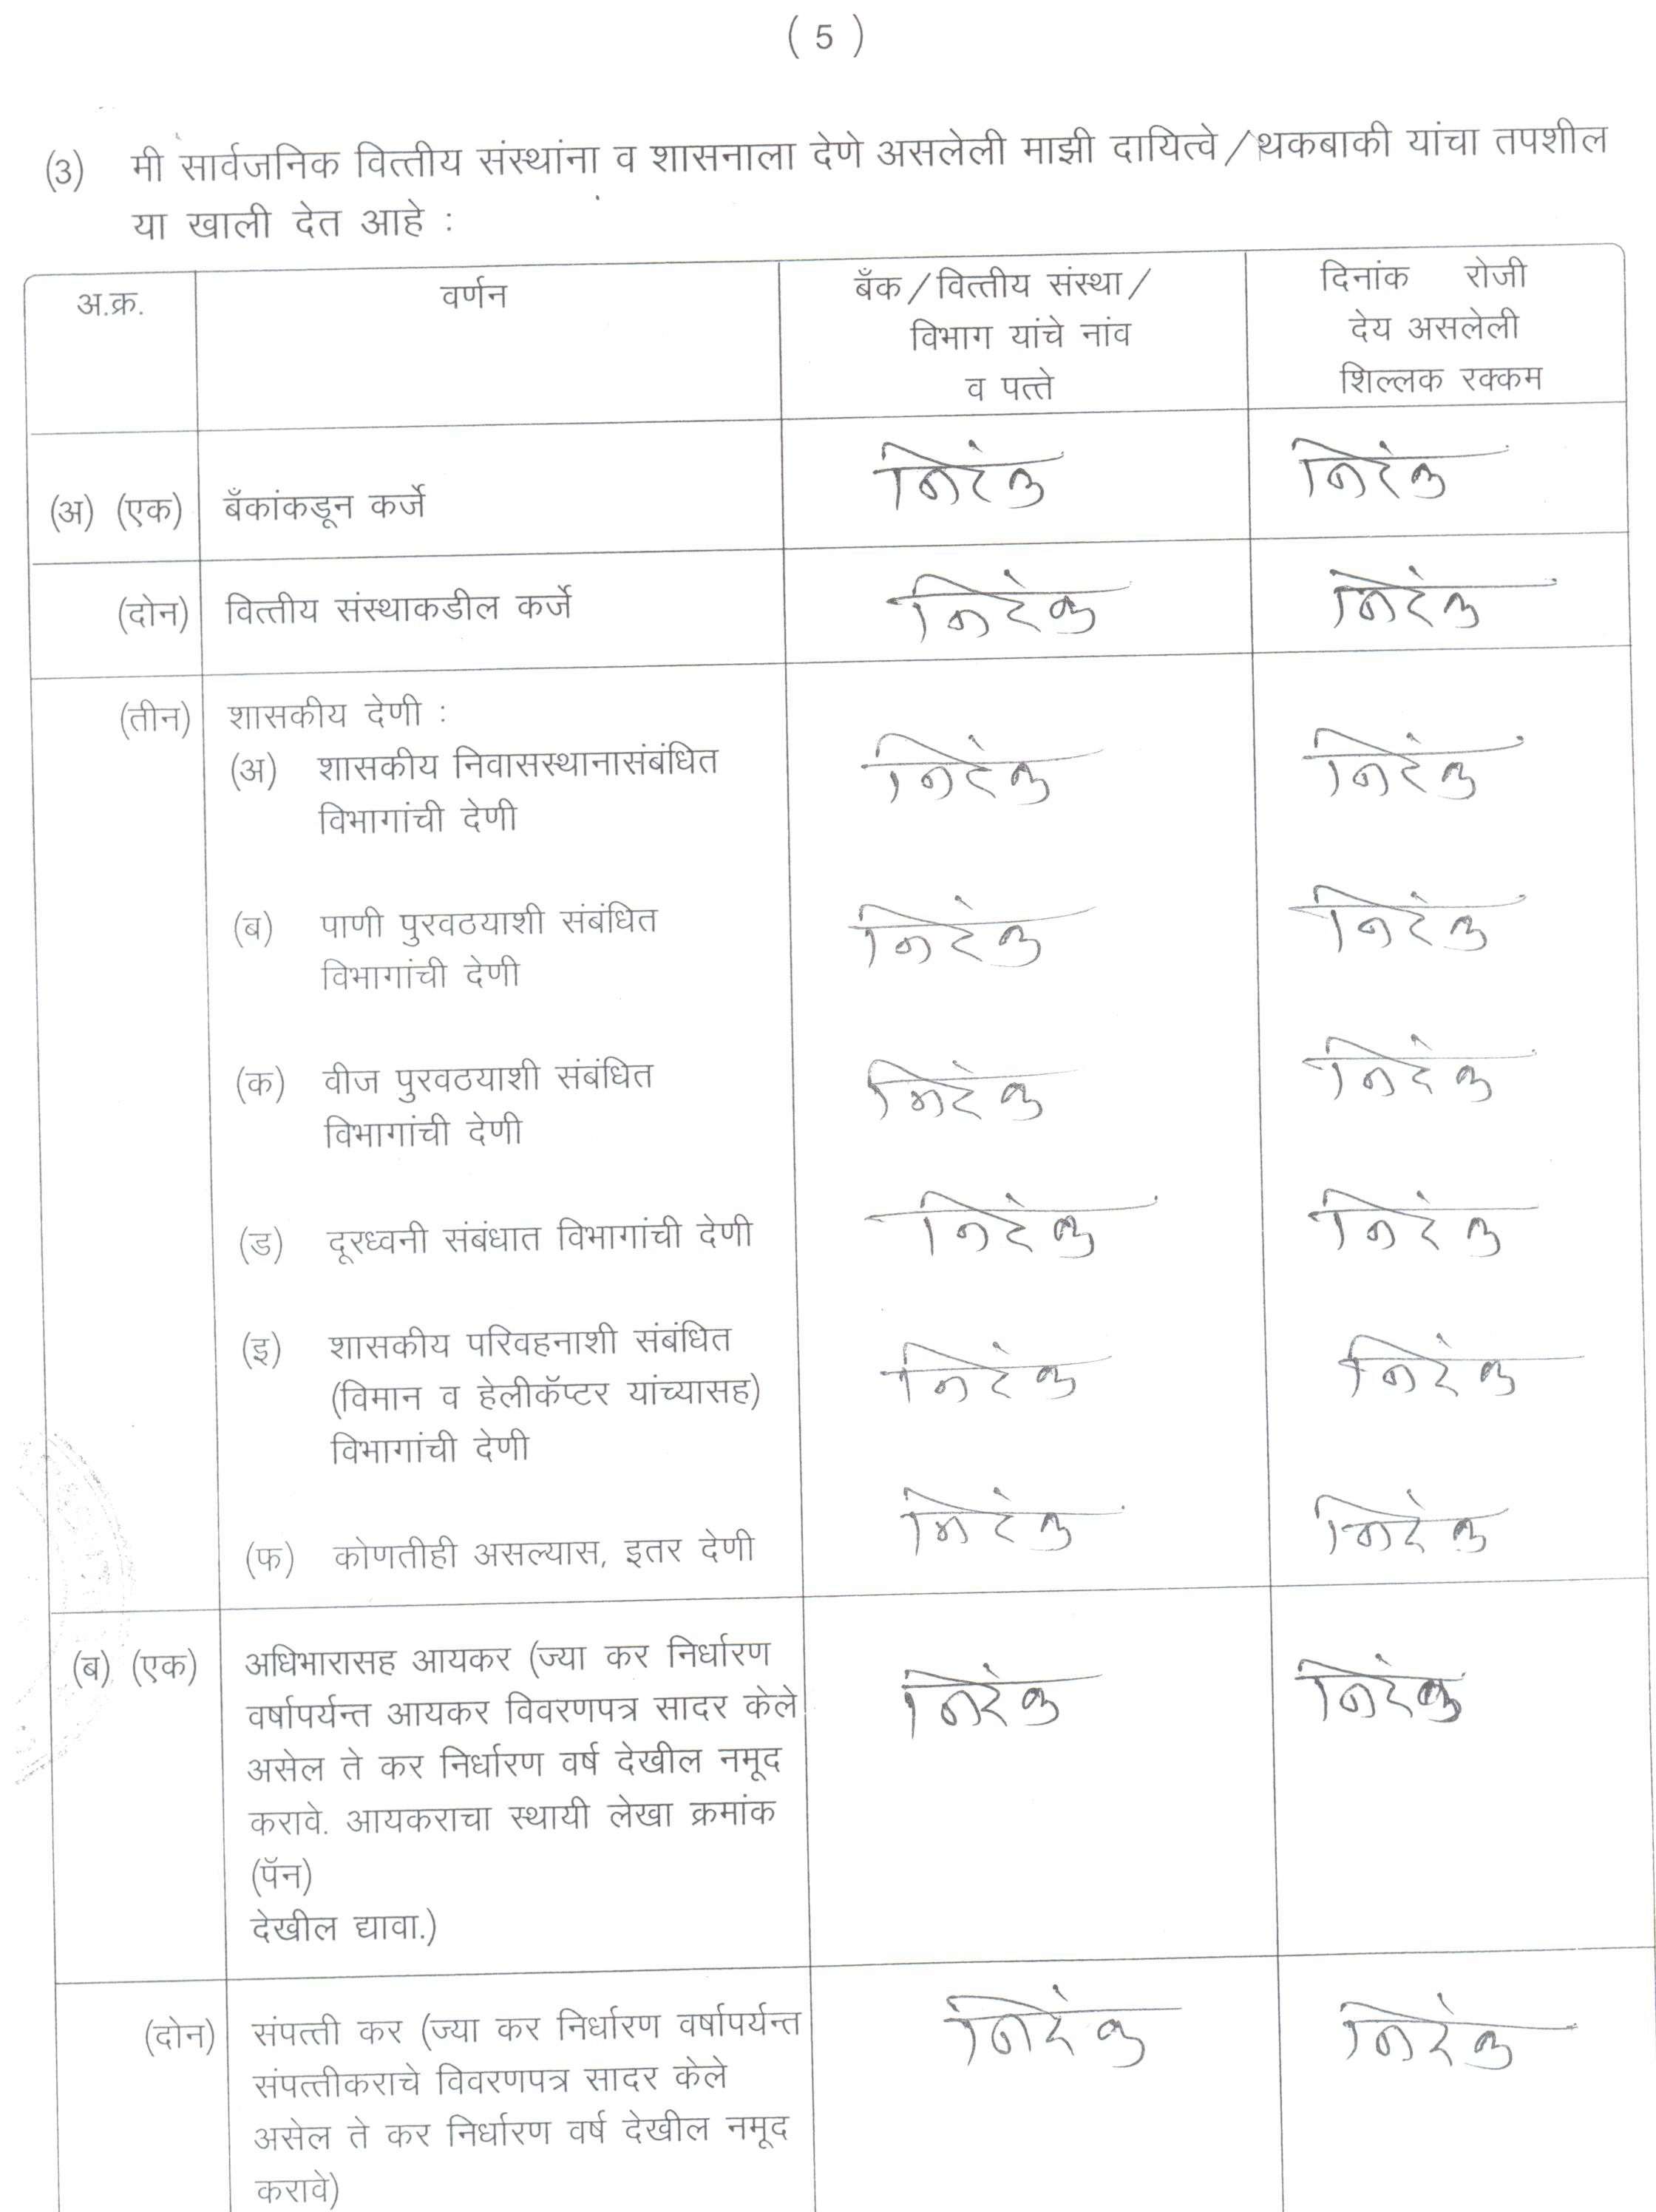 ( 5 )
(3) मी सार्वजनिक वित्तीय संस्थांना व शासनाला देणे असलेली माझी दायित्वे/थकबाकी यांचा तपशील
या खाली देत आहे :
अ.क्र. वर्णन बँक/वित्तीय संस्था/ दिनांक रोजी
विभाग यांचे नांव देय असलेली
व पत्ते शिल्लक रक्कम
(अ) (एक) बँकांकडून कर्जे निरंक निरंक
(दोन) वित्तीय संस्थाकडील कर्जे निरंक निरंक
(तीन) शासकीय देणी :
(अ) शासकीय निवासस्थानासंबंधित निरंक निरंक
विभागांची देणी
(ब) पाणी पुरवठयाशी संबंधित निरंक निरंक
विभागांची देणी
(क) वीज पुरवठयाशी संबंधित निरंक निरंक
विभागांची देणी
(ड) दूरध्वनी संबंधात विभागांची देणी निरंक निरंक
(इ) शासकीय परिवहनाशी संबंधित निरंक निरंक
(विमान व हेलीकॅप्टर यांच्यासह)
विभागांची देणी
(फ) कोणतीही असल्यास, इतर देणी निरंक निरंक
(ब) (एक) अधिभारासह आयकर (ज्या कर निर्धारण निरंक निरंक
वर्षापर्यन्त आयकर विवरणपत्र सादर केले
असेल ते कर निर्धारण वर्ष देखील नमूद
करावे. आयकराचा स्थायी लेखा क्रमांक
(पॅन)
देखील द्यावा.)
(दोन) संपत्ती कर (ज्या कर निर्धारण वर्षापर्यन्त निरंक निरंक
संपत्तीकराचे विवरणपत्र सादर केले
असेल ते कर निर्धारण वर्ष देखील नमूद
करावे)